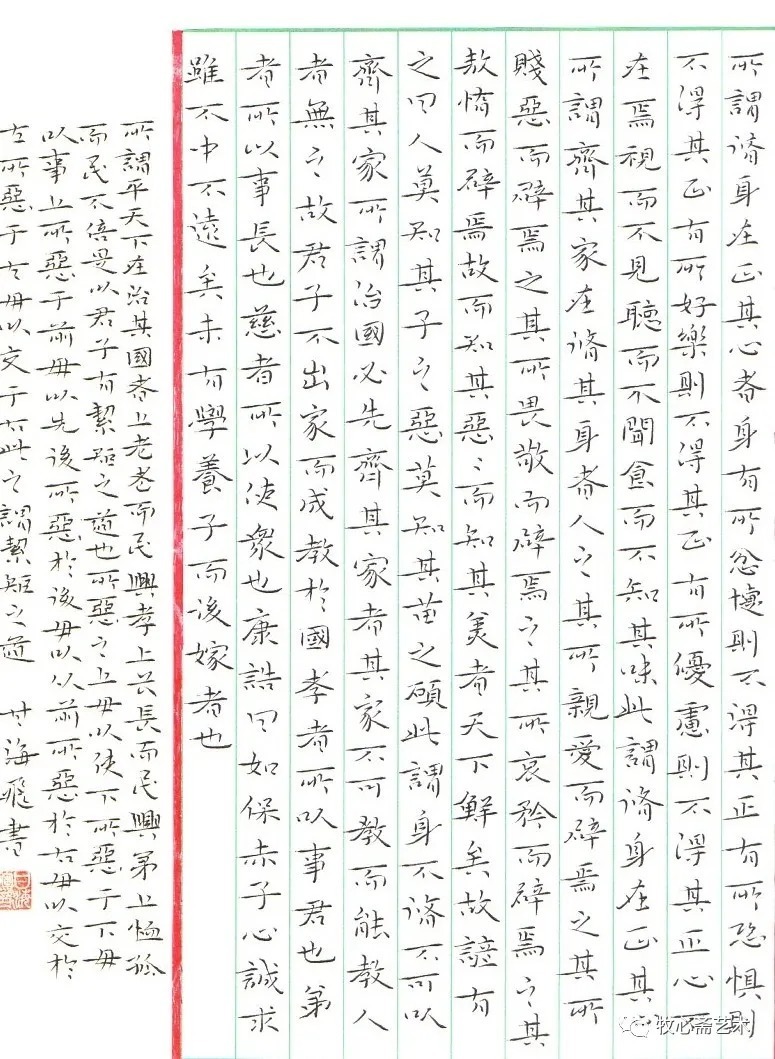 所謂脩身在正其心者身有所忿懥則不得其正有所恐懼則
不得其正有所好樂則不得其正有所優慮則不得其正心
在焉視而不見聽而不聞食而不知其味此謂脩身在正其
所謂齊其家在脩其身者人之其所親愛而辟焉之其所
賤惡而辟焉之其所畏敬而辟焉之其所哀矜而辟焉之其
敖惰而辟焉故而知其惡〻而知其美者天下鮮矣故諺有
之曰人莫知其子之惡莫知其苗之碩此謂身不脩不可以
齊其家所謂治國必先齊其家者其家不可教而能教人
者無之故君子不出家而成教於國孝者所以事君也弟
者所以事長也慈者所以使衆也康誥曰如保赤子心誠求
雖不中不遠矣未有學養子而後嫁者也
所謂平天下在治其國者上老老而民興孝上長長而民興弟上恤孤
而民不倍是以君子有絜矩之道也所惡之上毋以使下所惡于下毋
以事上所惡于前毋以先後所惡於後毋以從前所惡於右毋以交於
左所惡于左毋以交于右此之謂絜矩之道 甘海飛書
牧心斋艺术